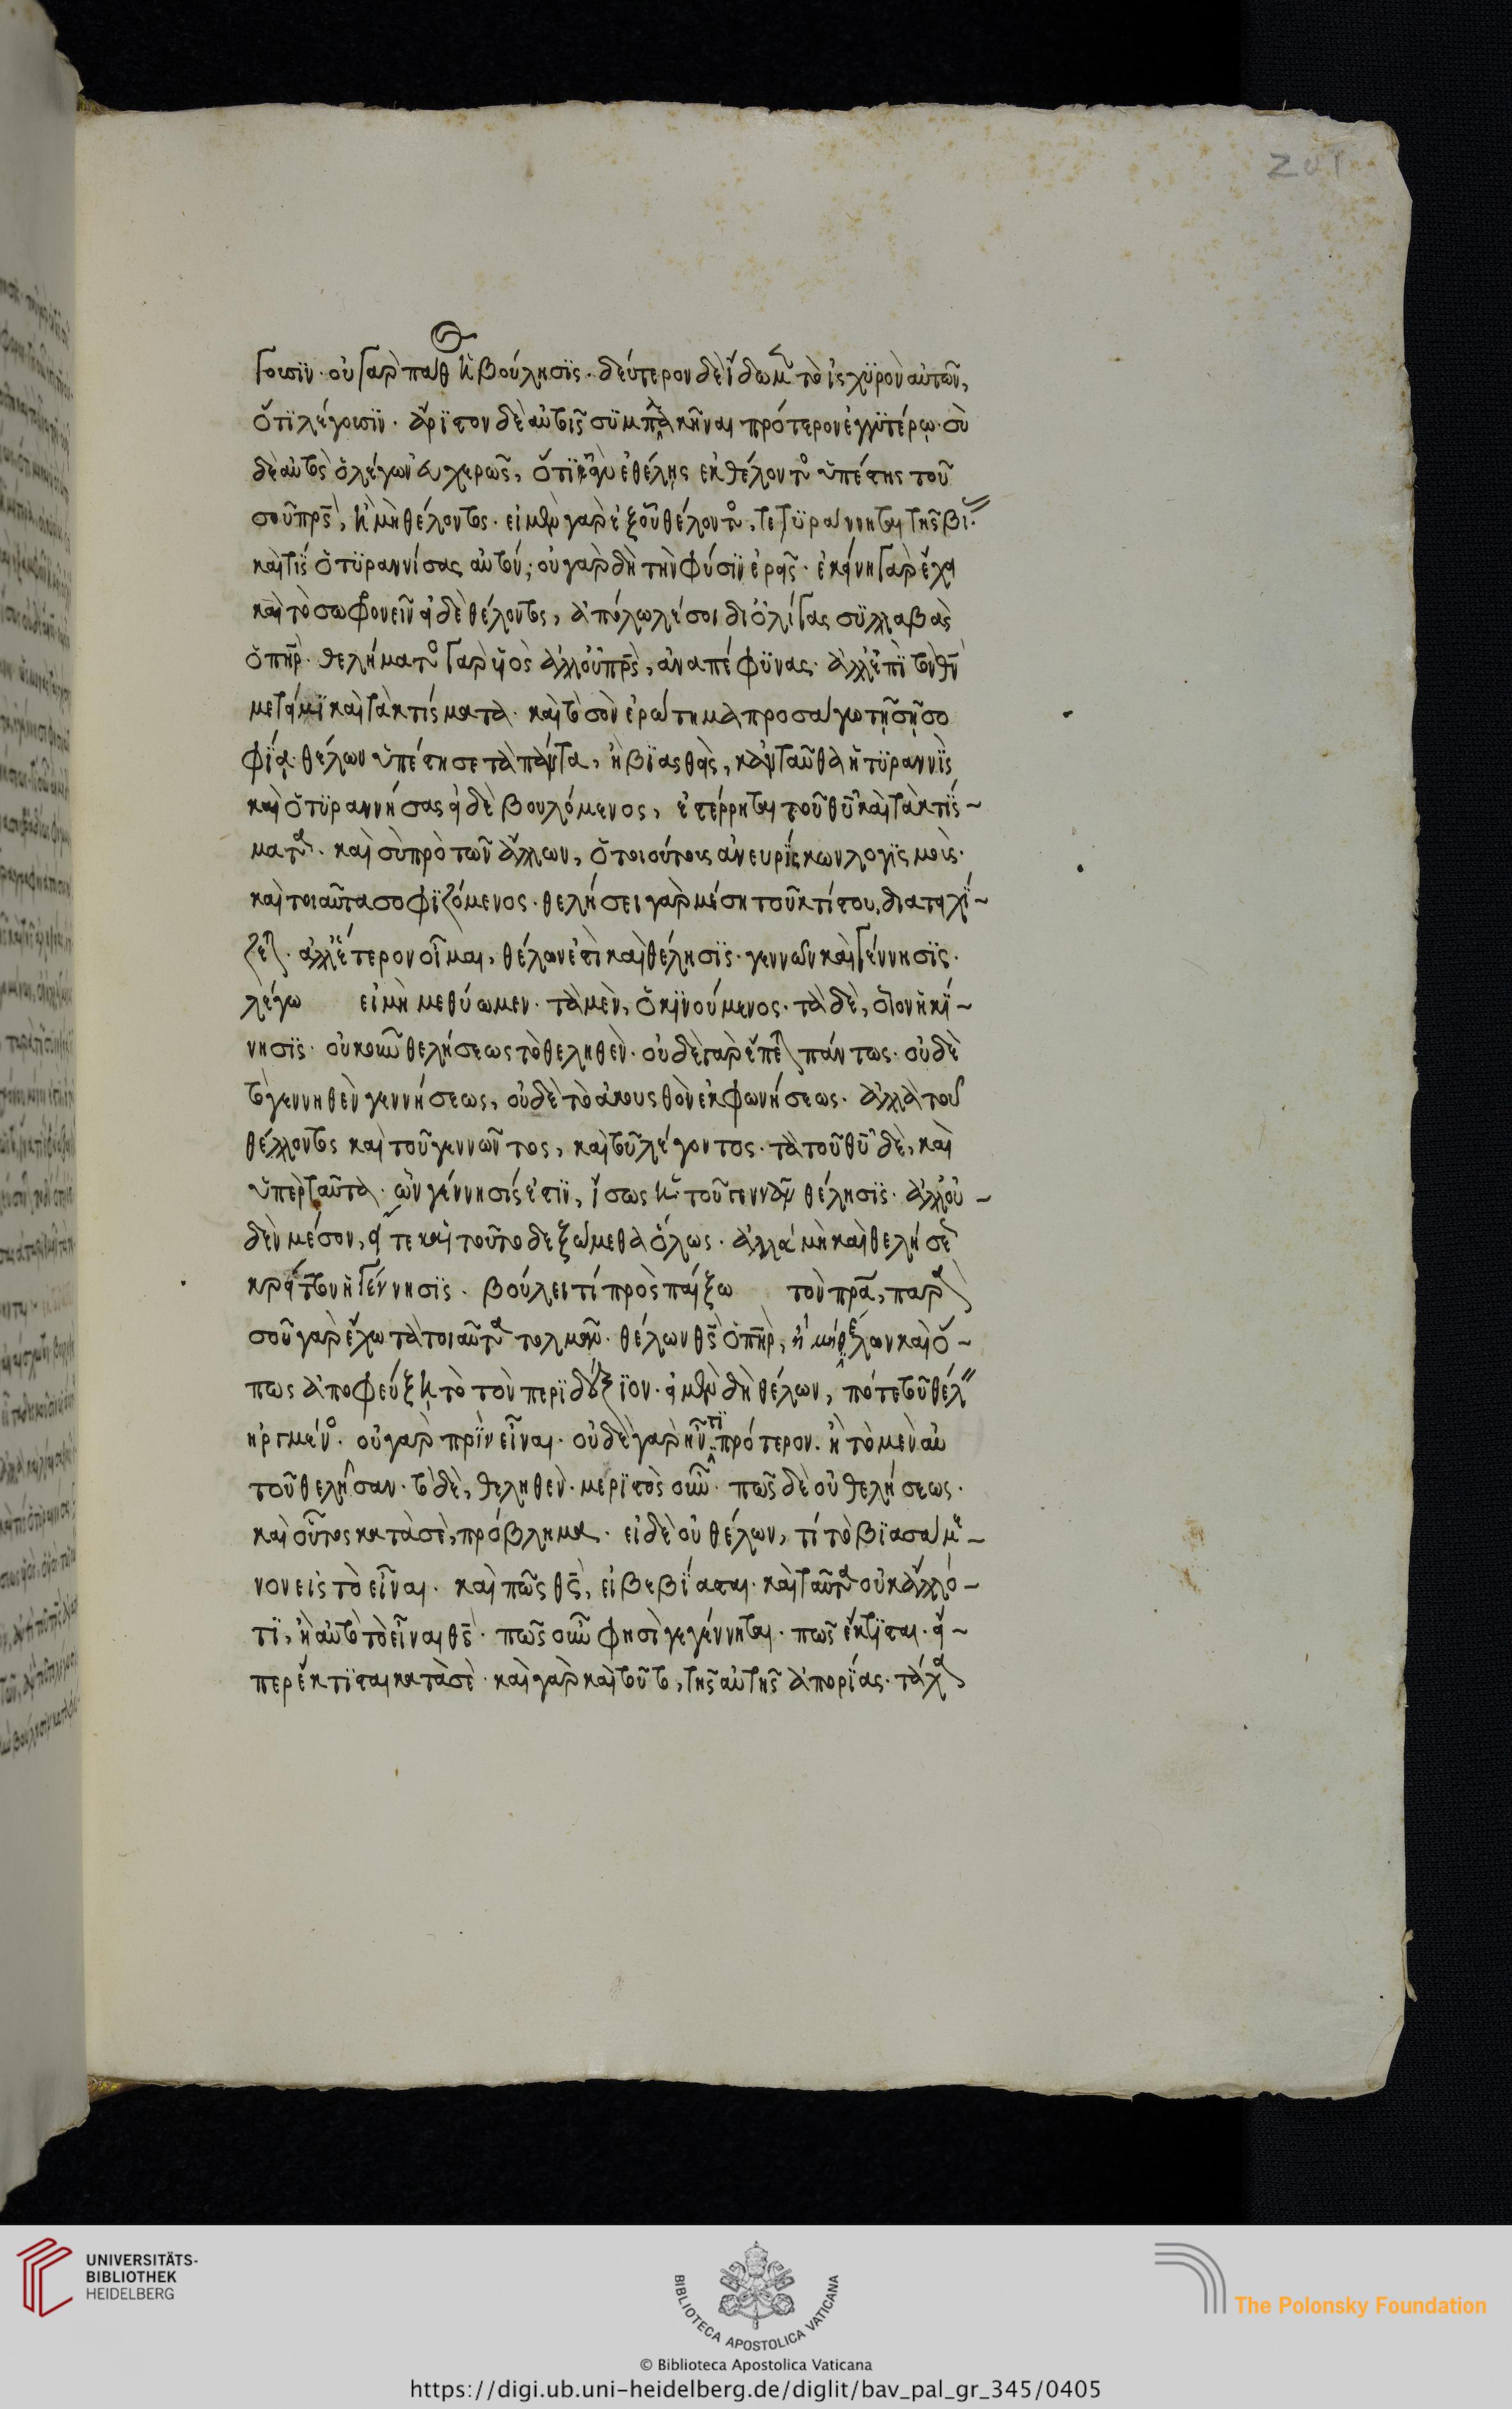 γουσϊν· οὐ γὰρ πάθ ἡ βούλησϊς· δεύτερον δὲ ἴδωμ τὸ ἰσχϋρὸν αὐτῶν,
ὅτϊ λέγουσϊν· ἄρϊστον δὲ αὐτοῖς συμπλακῆναι πρότερον ἐγγϋτέρω· σὺ
δὲ αὐτὸς ὁ λέγων εὐχερῶς, ὅτϊ ἂν ἐθέλης ἐκ θέλοντο ὑπέστης τοῦ
σοῦ πρς, ἢ μὴ θέλοντος· εἰ μὲν γὰρ ἐξ οὐ θέλοντο, τετϋράννηται τῆς βί·
καὶ τίς ὁ τϋραννίσας αὐτόν; οὐ γὰρ δὴ τὴν φύσϊν ἐρεῖς· ἐκείνη γὰρ ἔχει
καὶ τὸ σωφρονεῖν εἰ δὲ θέλοντος, ἀπόλωλέ σοι δι ὀλίγας σϋλλαβὰς
ὁ πηρ· θελήματο γὰρ υἱὸς ἀλλ οὐ πρς, ἀναπέφϋνας· ἀλλ ἐπῒ τὸν θν
μέτειμϊ καὶ τὰ κτίσματα· καὶ τὸ σὸν ἐρώτημα προσάγω τῆ σῆ σο
φΐα· θέλων ὑπέστησε τὰ πάντα, ἢ βϊασθεὶς, κἀνταῦθα ἡ τϋραννῒς
καὶ ὁ τϋραννήσας εἰ δὲ βουλόμενος, ἐστέρρηται τοῦ θυ καὶ τὰ κτΐσ~
ματα· καὶ σὺ πρὸ τῶν ἄλλων, ὁ τοιούτους ἀνευρΐσκων λογϊσμοὺς·
καὶ τοιαῦτα σοφϊζόμενος· θελήσει γὰρ μέση τοῦ κτίστου, διατειχΐ~
ζε· ἀλλ ἕτερον οἶμαι, θέλων ἐστὶ καὶ θέλησϊς· γεννῶν καὶ γέννησϊς·
λέγω εἰ μὴ μεθύωμεν· τὰ μὲν, ὁ κϊνούμενος· τὰ δὲ, οἷον ἡ κΐ~
νησϊς· οὐκοῦν θελήσεως τὸ θεληθὲν· οὐδὲ γὰρ ἕπε πάντως· οὐδὲ
τὸ γεννηθὲν γεννήσεως, οὐδὲ τὸ ἀκουσθὲν ἐκφωνήσεως· ἀλλὰ τοῦ
θέλλοντος καὶ τοῦ γεννῶντος, καὶ τοῦ λέγοντος· τὰ τοῦ θυ δὲ, καὶ
ὑπὲρ ταῦτα· ὧν γέννησίς ἐστϊν, ἴσως ἡ τοῦ γεννᾶν θέλησϊς· ἀλλ οὐ~
δὲν μέσον, εἴ τε καὶ τοῦτο δεξώμεθα ὅλως· ἀλλὰ μὴ καὶ θελήσε
κρείττων ἡ γέννησϊς· βούλει τί προσπαίξω τὸν πρα, παρ
σοῦ γὰρ ἔχω τὰ τοιαῦτα τολμᾶν· θέλων θς ὁ πηρ, ἢ μὴ θέλων καὶ ὅ~
πως ἀποφεύξη τὸ τὸν περϊδέξϊον· εἰ μὲν δὴ θέλων, πότε τοῦ θέλ
ἠργμένο· οὐ γὰρ πρῒν εἶναι· οὐδὲ γὰρ ἦν τϊ πρότερον· ἢ τὸ μὲν αὐ
τοῦ θελῆσαν· τὸ δὲ, θεληθὲν· μερϊστὸς οὖν· πῶς δὲ οὐ θελήσεως·
καὶ οὗτος κατὰ σὲ, πρόβλημα· εἰ δὲ οὐ θέλων, τί τὸ βϊασάμε~
νον εἰς τὸ εἶναι· καὶ πῶς θς, εἰ βεβΐασται· καὶ ταῦτα οὐκ ἄλλό~
τϊ, ἢ αὐτὸ τὸ εἶναι θς· πῶς οὖν φησὶ γεγέννηται· πῶς ἔκτϊσται· εἴ~
περ ἔκτϊσται κατὰ σὲ· καὶ γὰρ καὶ τοῦτο, τῆς αὐτῆς ἀπορΐας· τάχ
201
UNIVERSITÄTS-
BIBLIOTHEK
HEIDELBERG
BIBLIOTECA APOSTOLICA VATICANA
The Polonsky Foundation
© Biblioteca Apostolica Vaticana
https://digi.ub.uni-heidelberg.de/diglit/bav_pal_gr_345/0405